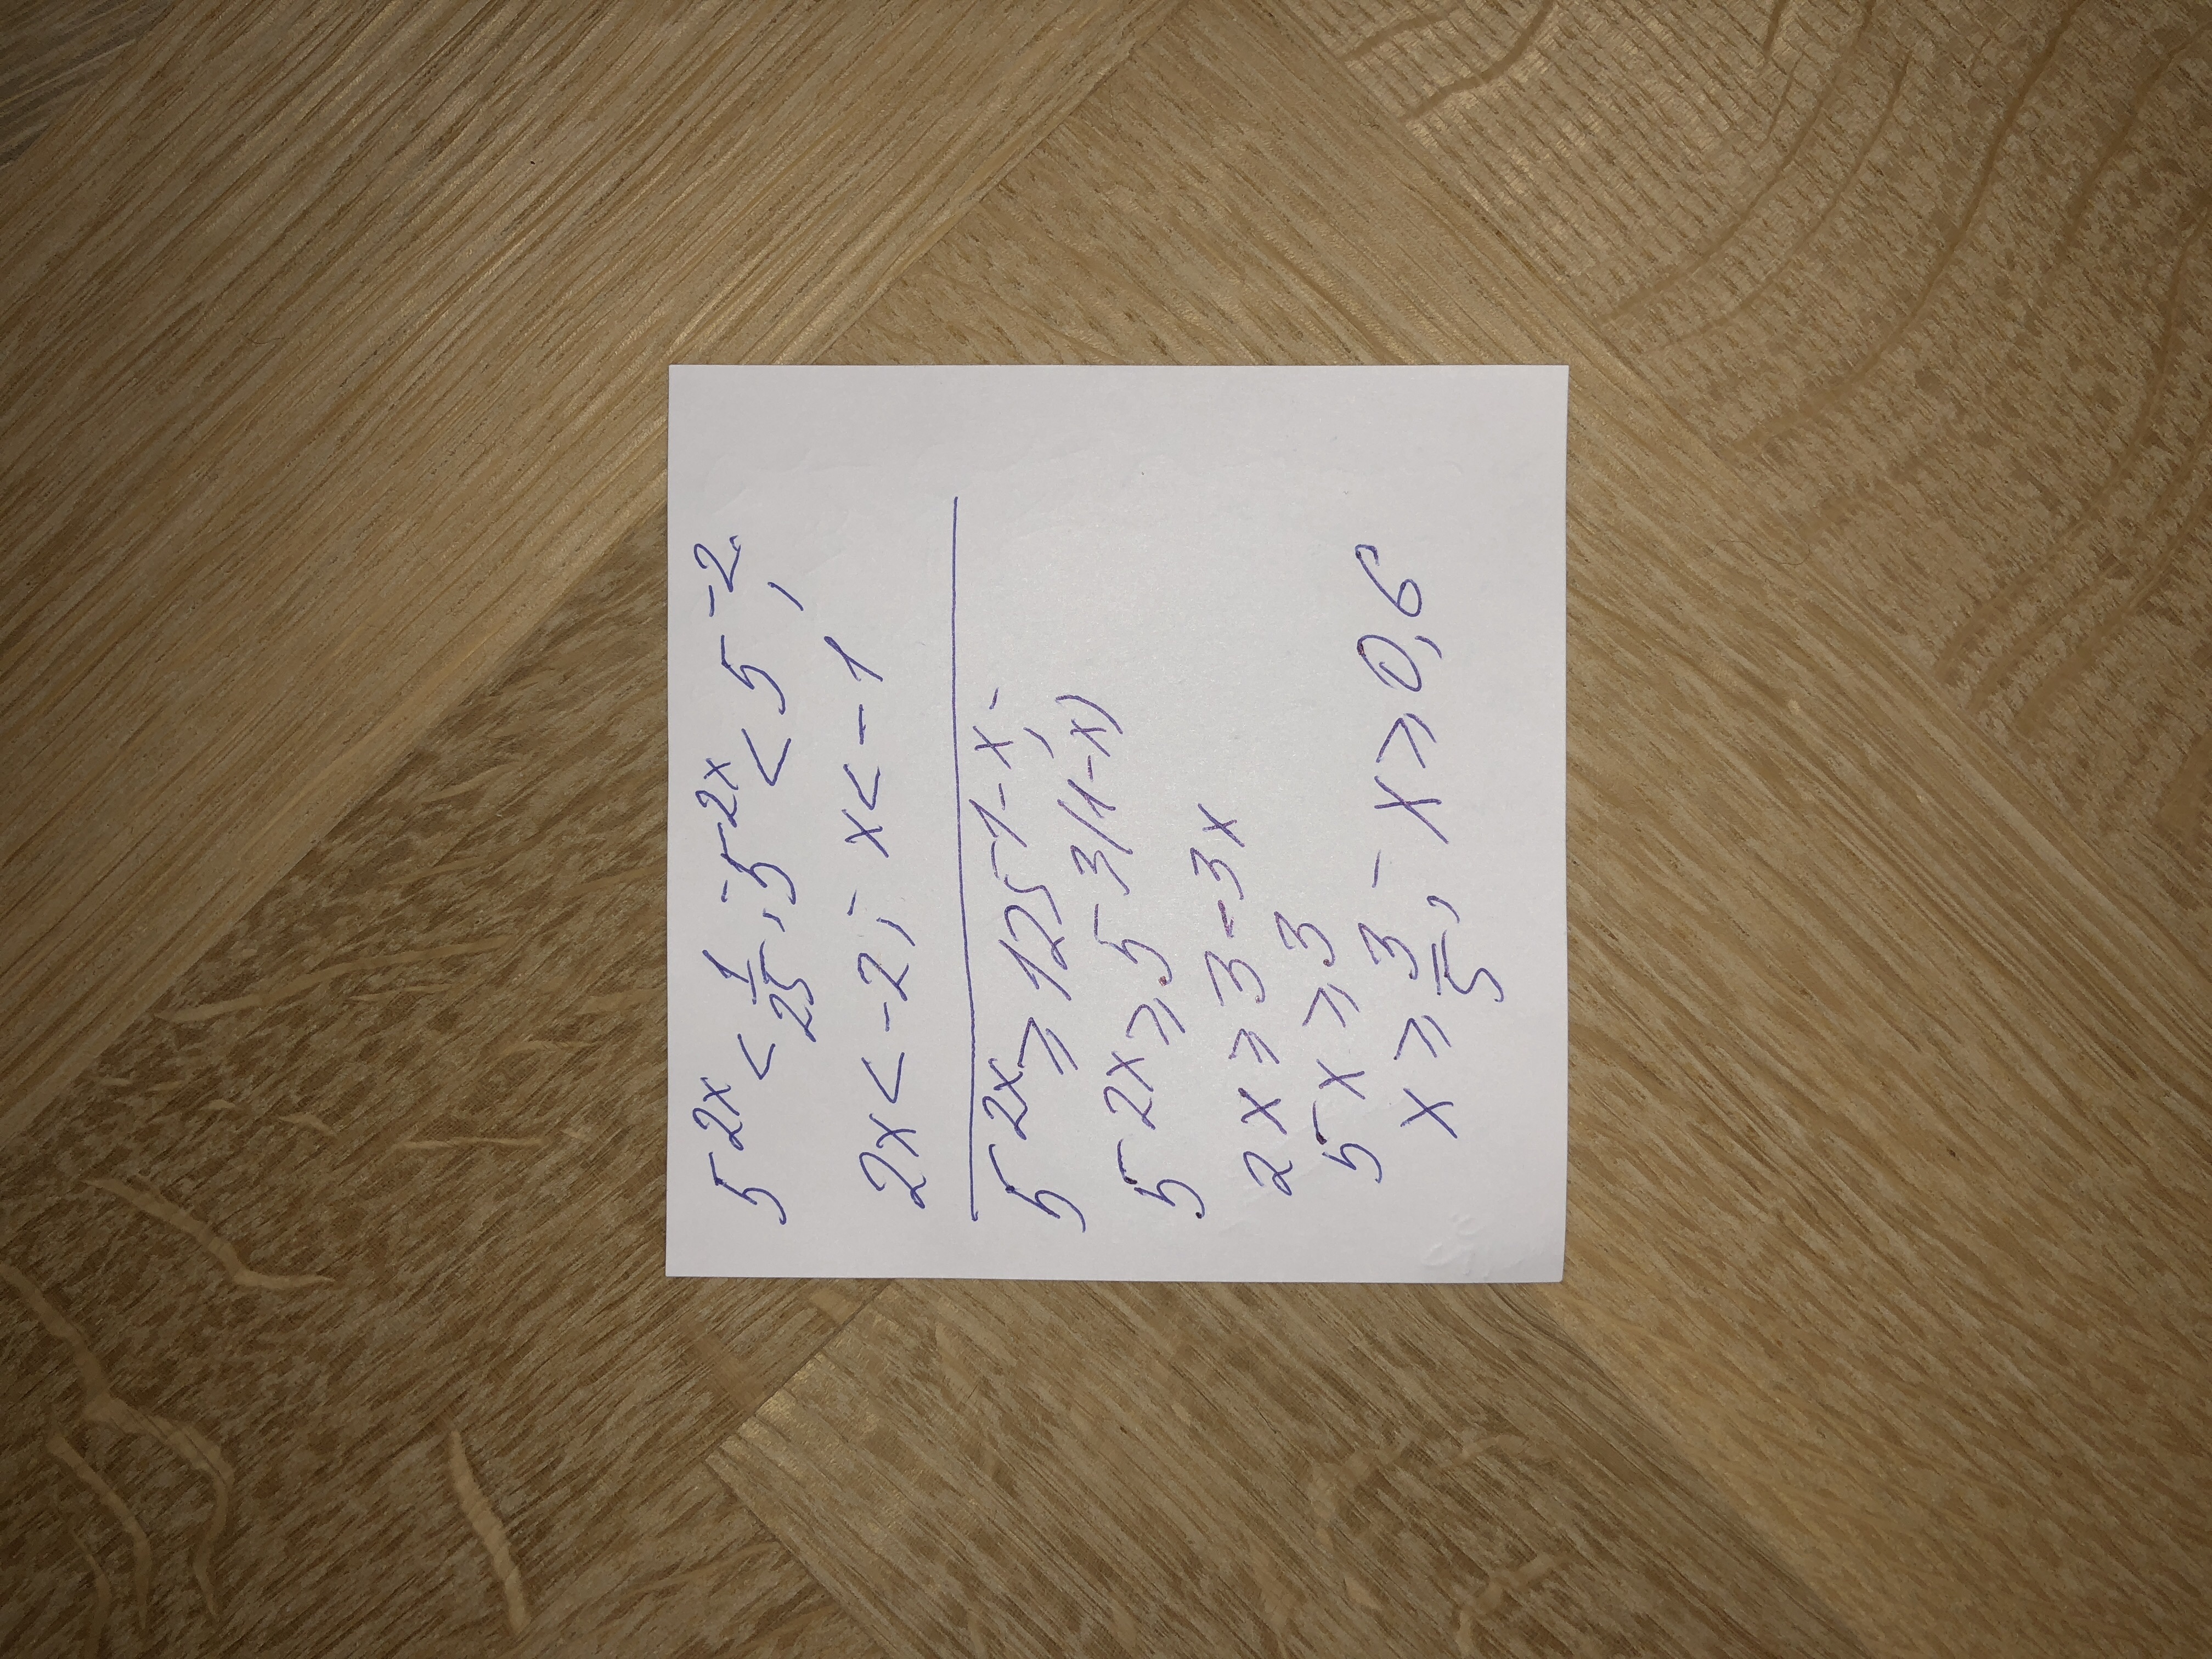 5^2x < 1/25; 5^2x < 5^-2;
2x < -2; x < -1
5^2x ⩾ 125^1-x;
5^2x ⩾ 5^3(1-x)
2x ⩾ 3-3x
5x ⩾ 3
x ⩾ 3/5; x ⩾ 0,6